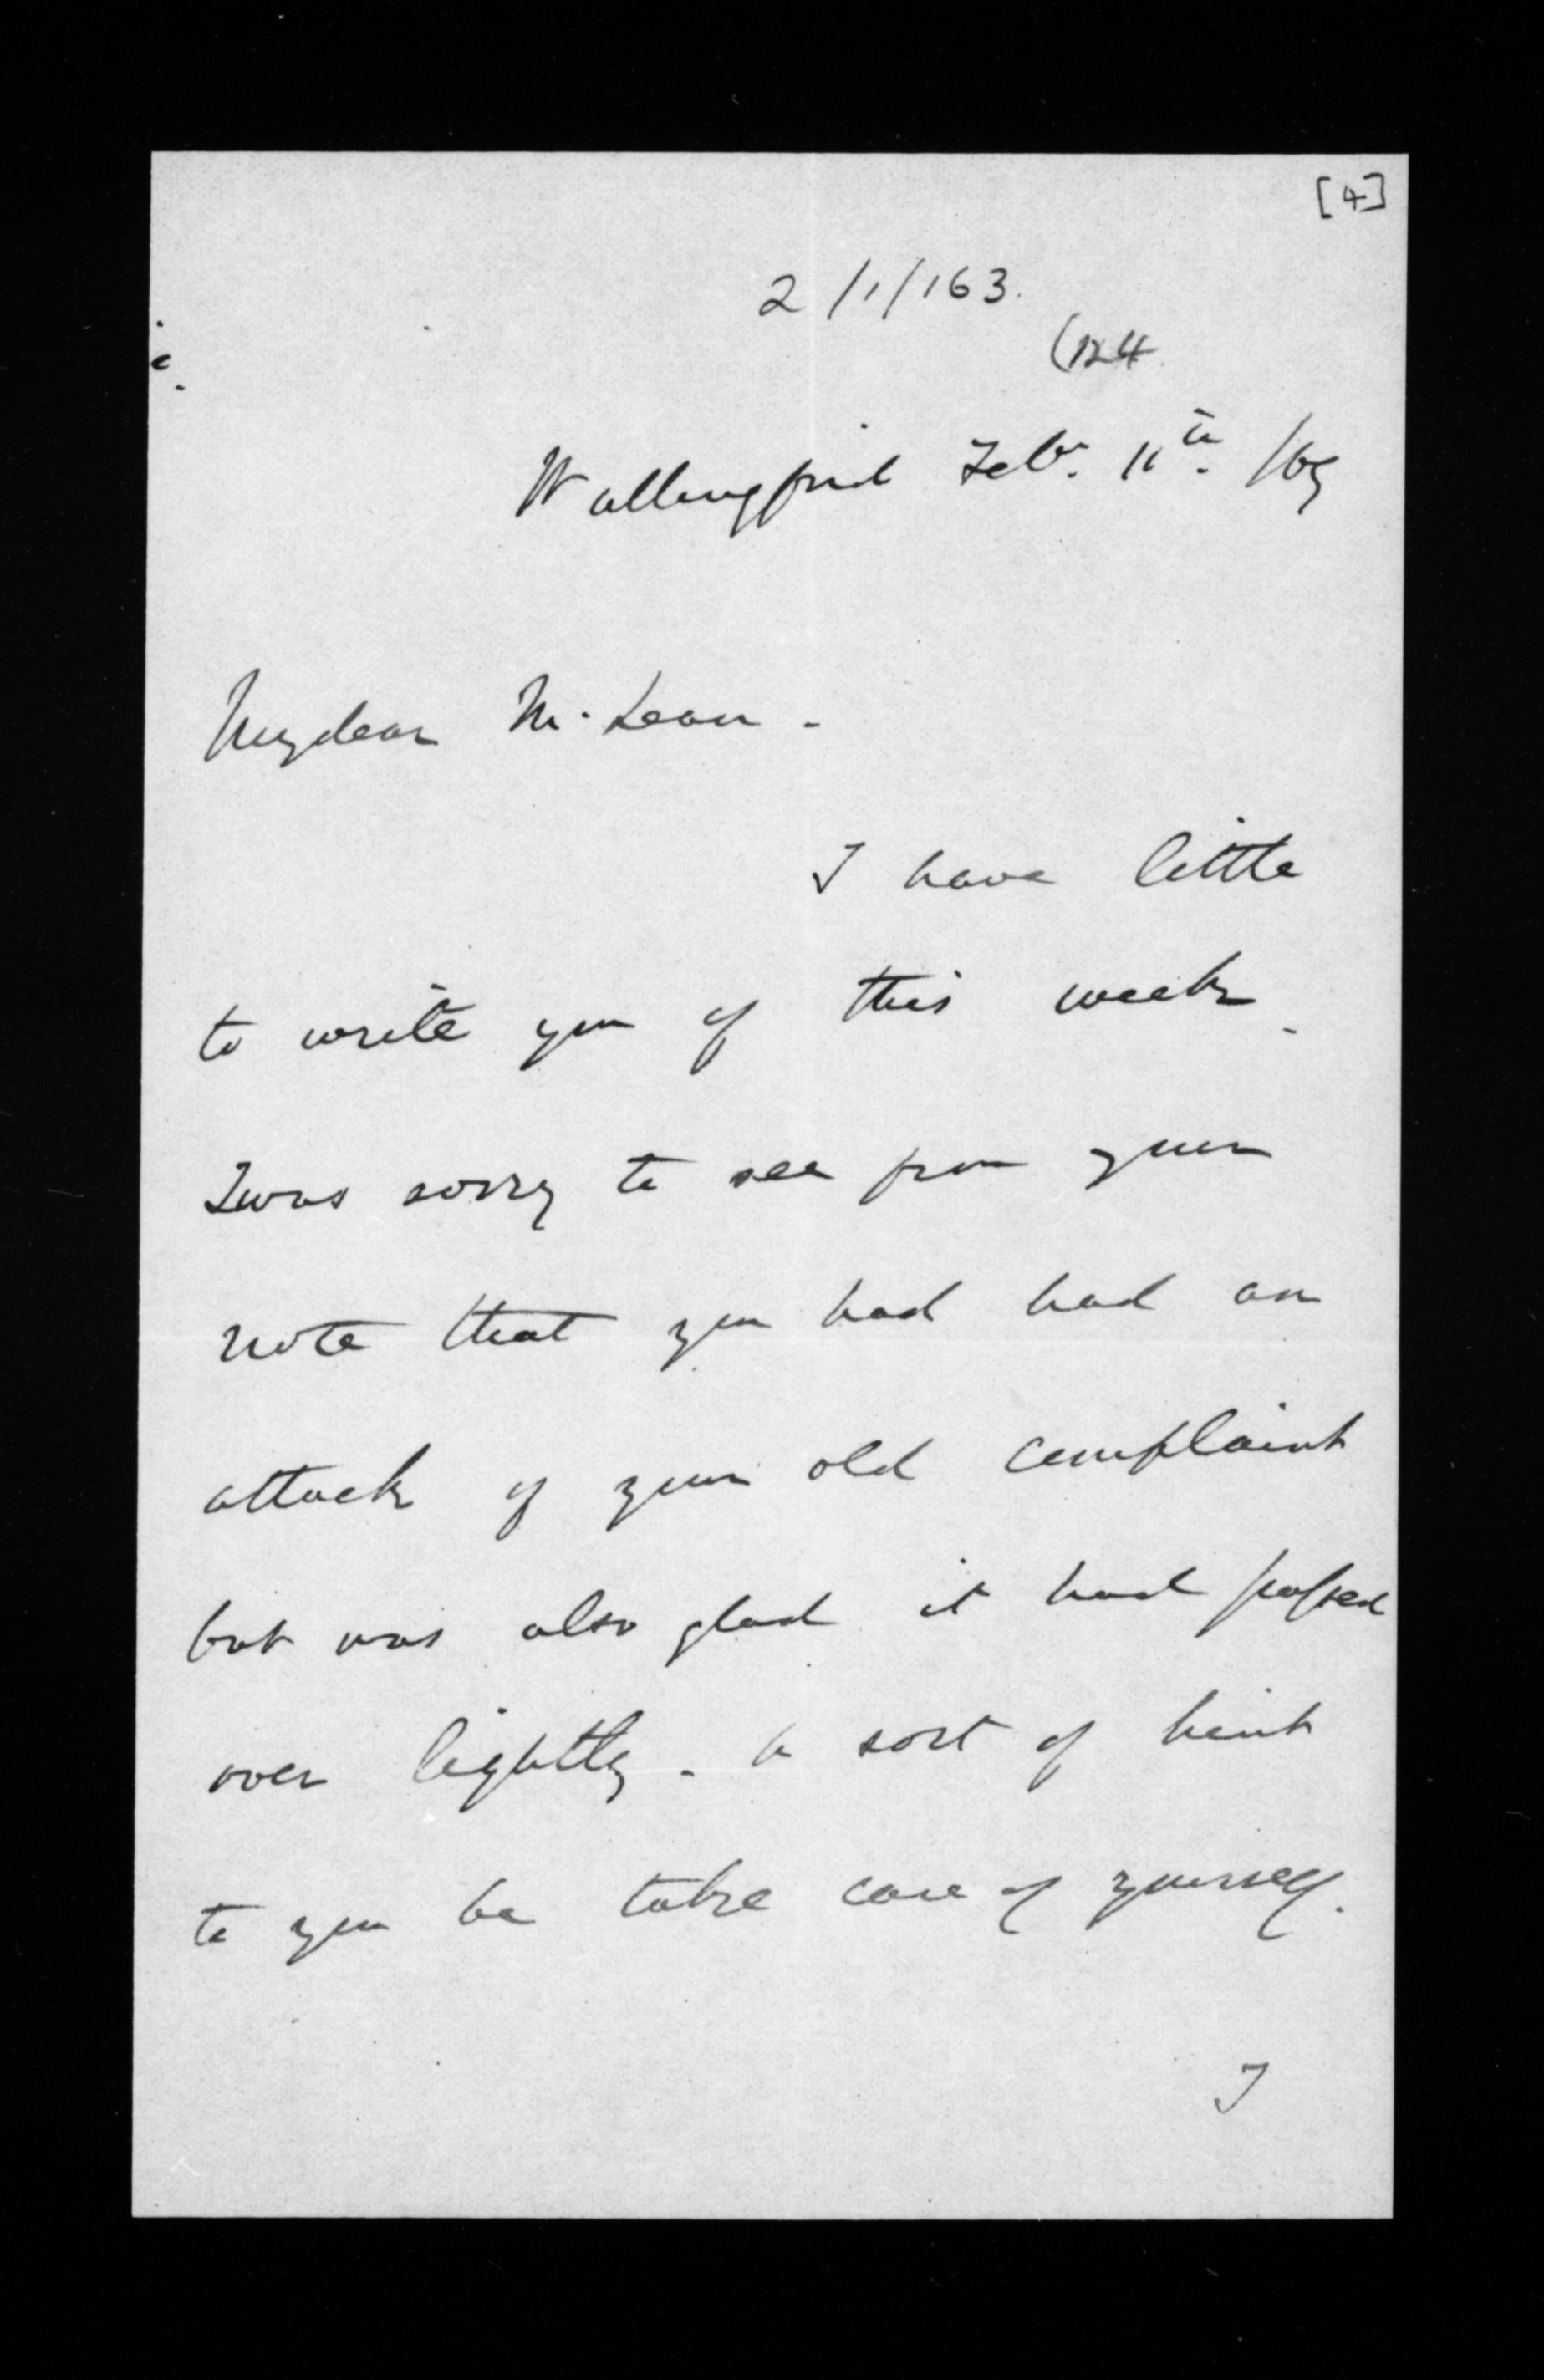 [4]
2/1/163.
(124
Wallingford Feby. 11th. /69
My dear McLean.
I have little
to write you of this week.
I was sorry to see from your
note that you had had an
attack of your old complaint
but was also glad it had passed
over lightly. a sort of hint
to you be take care of yourself.
I